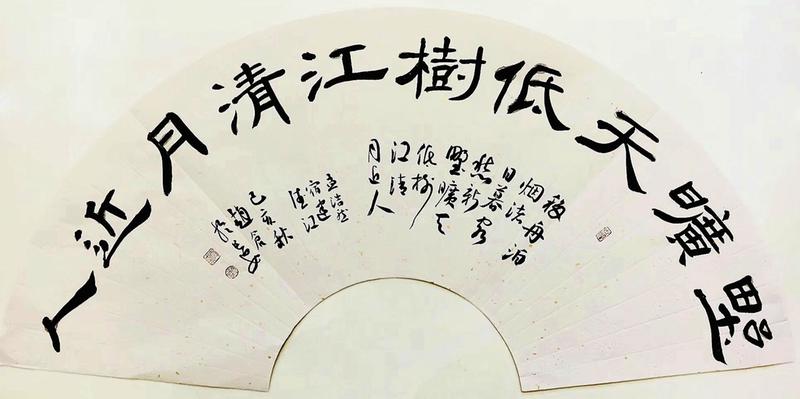 墅曠天低樹江清月近人
移舟泊
烟渚
日暮客
愁新
墅曠天
低樹
江清
月近人
孟浩然
宿建
德江
己亥秋